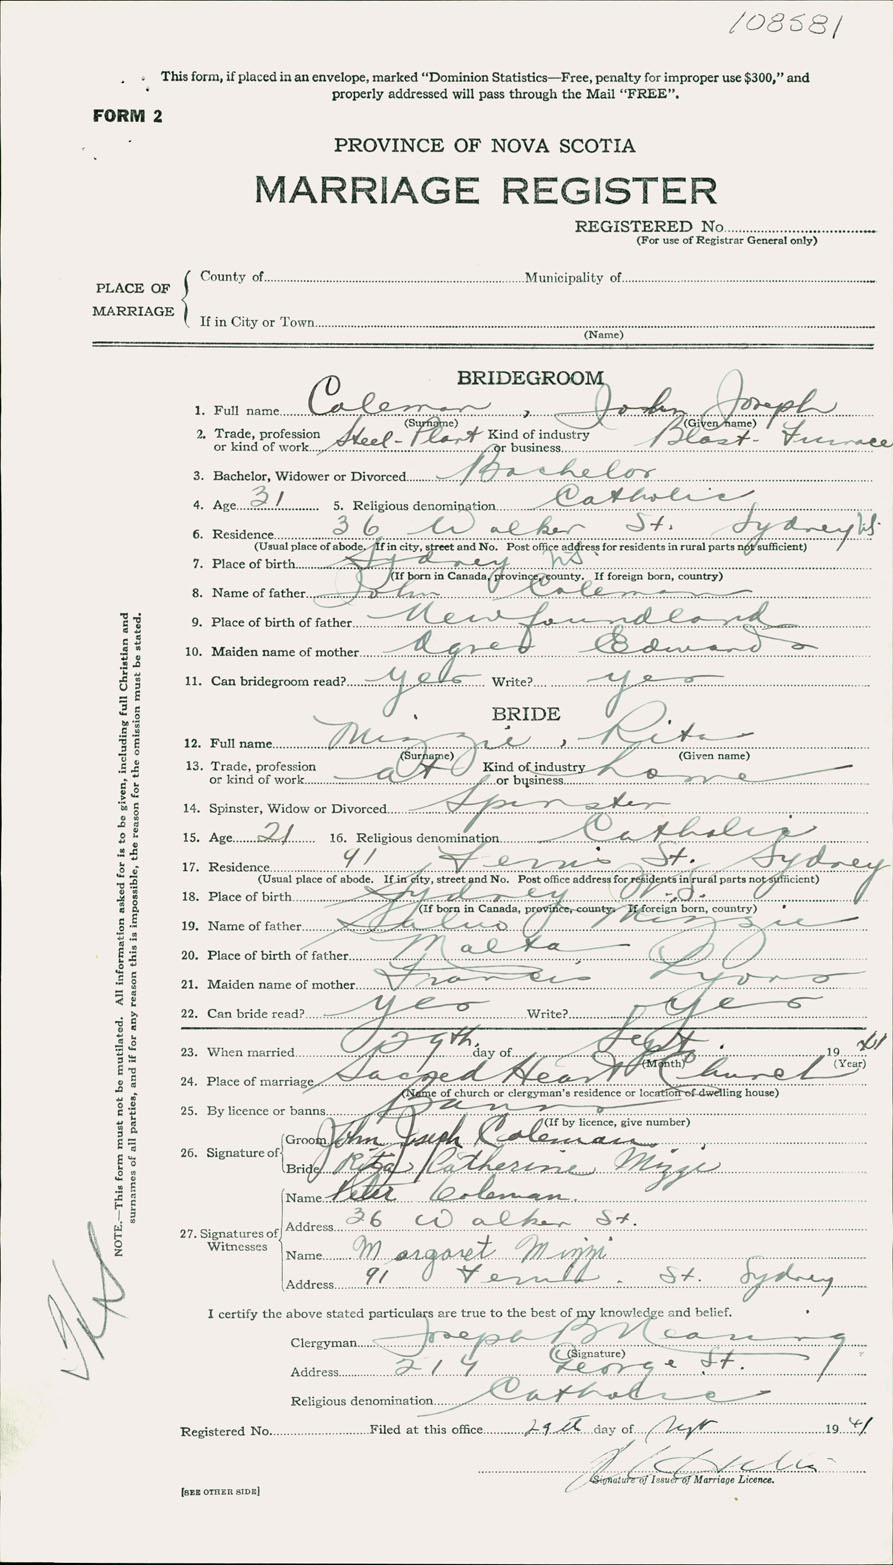 108581
This form, if placed in an envelope, marked "Dominion Statistics—Free, penalty for improper use $300," and
properly addressed will pass through the Mail "FREE".
FORM 2
PROVINCE OF NOVA SCOTIA
MARRIAGE REGISTER
REGISTERED No.
(For use of Registrar General only)
PLACE OF MARRIAGE
County of Municipality of
If in City or Town
(Name)
BRIDEGROOM
1. Full name Coleman, John Joseph
(Surname) (Given name)
2. Trade, profession or kind of work Steel-Plant Kind of industry or business Blast-Furnace
3. Bachelor, Widower or Divorced Bachelor
4. Age 31 5. Religious denomination Catholic
6. Residence 36 Walker St. Sydney NS
(Usual place of abode. If in city, street and No. Post office address for residents in rural parts not sufficient)
7. Place of birth Sydney NS
(If born in Canada, province, county. If foreign born, country)
8. Name of father John Coleman
9. Place of birth of father Newfoundland
10. Maiden name of mother Agnes Edwards
11. Can bridegroom read? yes Write? yes
BRIDE
12. Full name Mizzie, Rita
(Surname) (Given name)
13. Trade, profession or kind of work at Kind of industry or business home
14. Spinster, Widow or Divorced Spinster
15. Age 21 16. Religious denomination Catholic
17. Residence 91 St. Sydney
(Usual place of abode. If in city, street and No. Post office address for residents in rural parts not sufficient)
18. Place of birth Sydney N.S.
(If born in Canada, province, county. If foreign born, country)
19. Name of father Mizzie
20. Place of birth of father Malta
21. Maiden name of mother Francis Lyons
22. Can bride read? yes Write? yes
23. When married 29th. day of Sept. 19 41
(Month) (Year)
24. Place of marriage Sacred Heart Church
(Name of church or clergyman's residence or location of dwelling house)
25. By licence or banns Banns
(If by licence, give number)
26. Signature of
Groom John Joseph Coleman
Bride Rita Catherine Mizzi
27. Signatures of Witnesses
Name Peter Coleman.
Address 36 Walker St.
Name Margaret Mizzi
Address 91 St. Sydney
I certify the above stated particulars are true to the best of my knowledge and belief.
Clergyman Joseph B
(Signature)
Address 214 George St.
Religious denomination Catholic
Registered No. Filed at this office 29th day of Sept 19 41
Signature of Issuer of Marriage Licence.
[SEE OTHER SIDE]
NOTE.—This form must not be mutilated. All information asked for is to be given, including full Christian and
surnames of all parties, and if for any reason this is impossible, the reason for the omission must be stated.